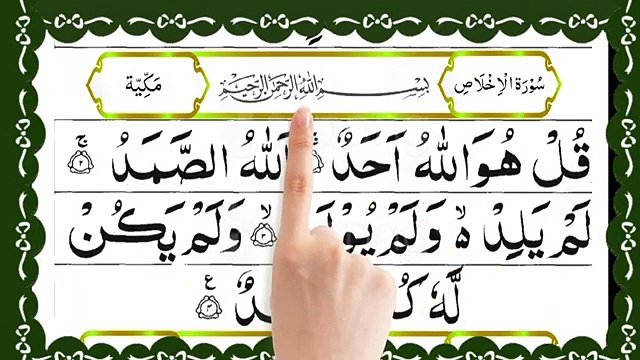 سُوْرَةُ الْاِخْلَاصِ بِسْمِ اللهِ الرَّحْمٰنِ الرَّحِيْمِ مَكِّيَّة
قُلْ هُوَ اللّٰهُ اَحَدٌ ۚ اَللّٰهُ الصَّمَدُ ۚ ﴿٢﴾
لَمْ يَلِدْ ۙ وَلَمْ ۙ ﴿٣﴾ وَلَمْ يَكُنْ
لَّهٗ ﴿٤﴾ ع